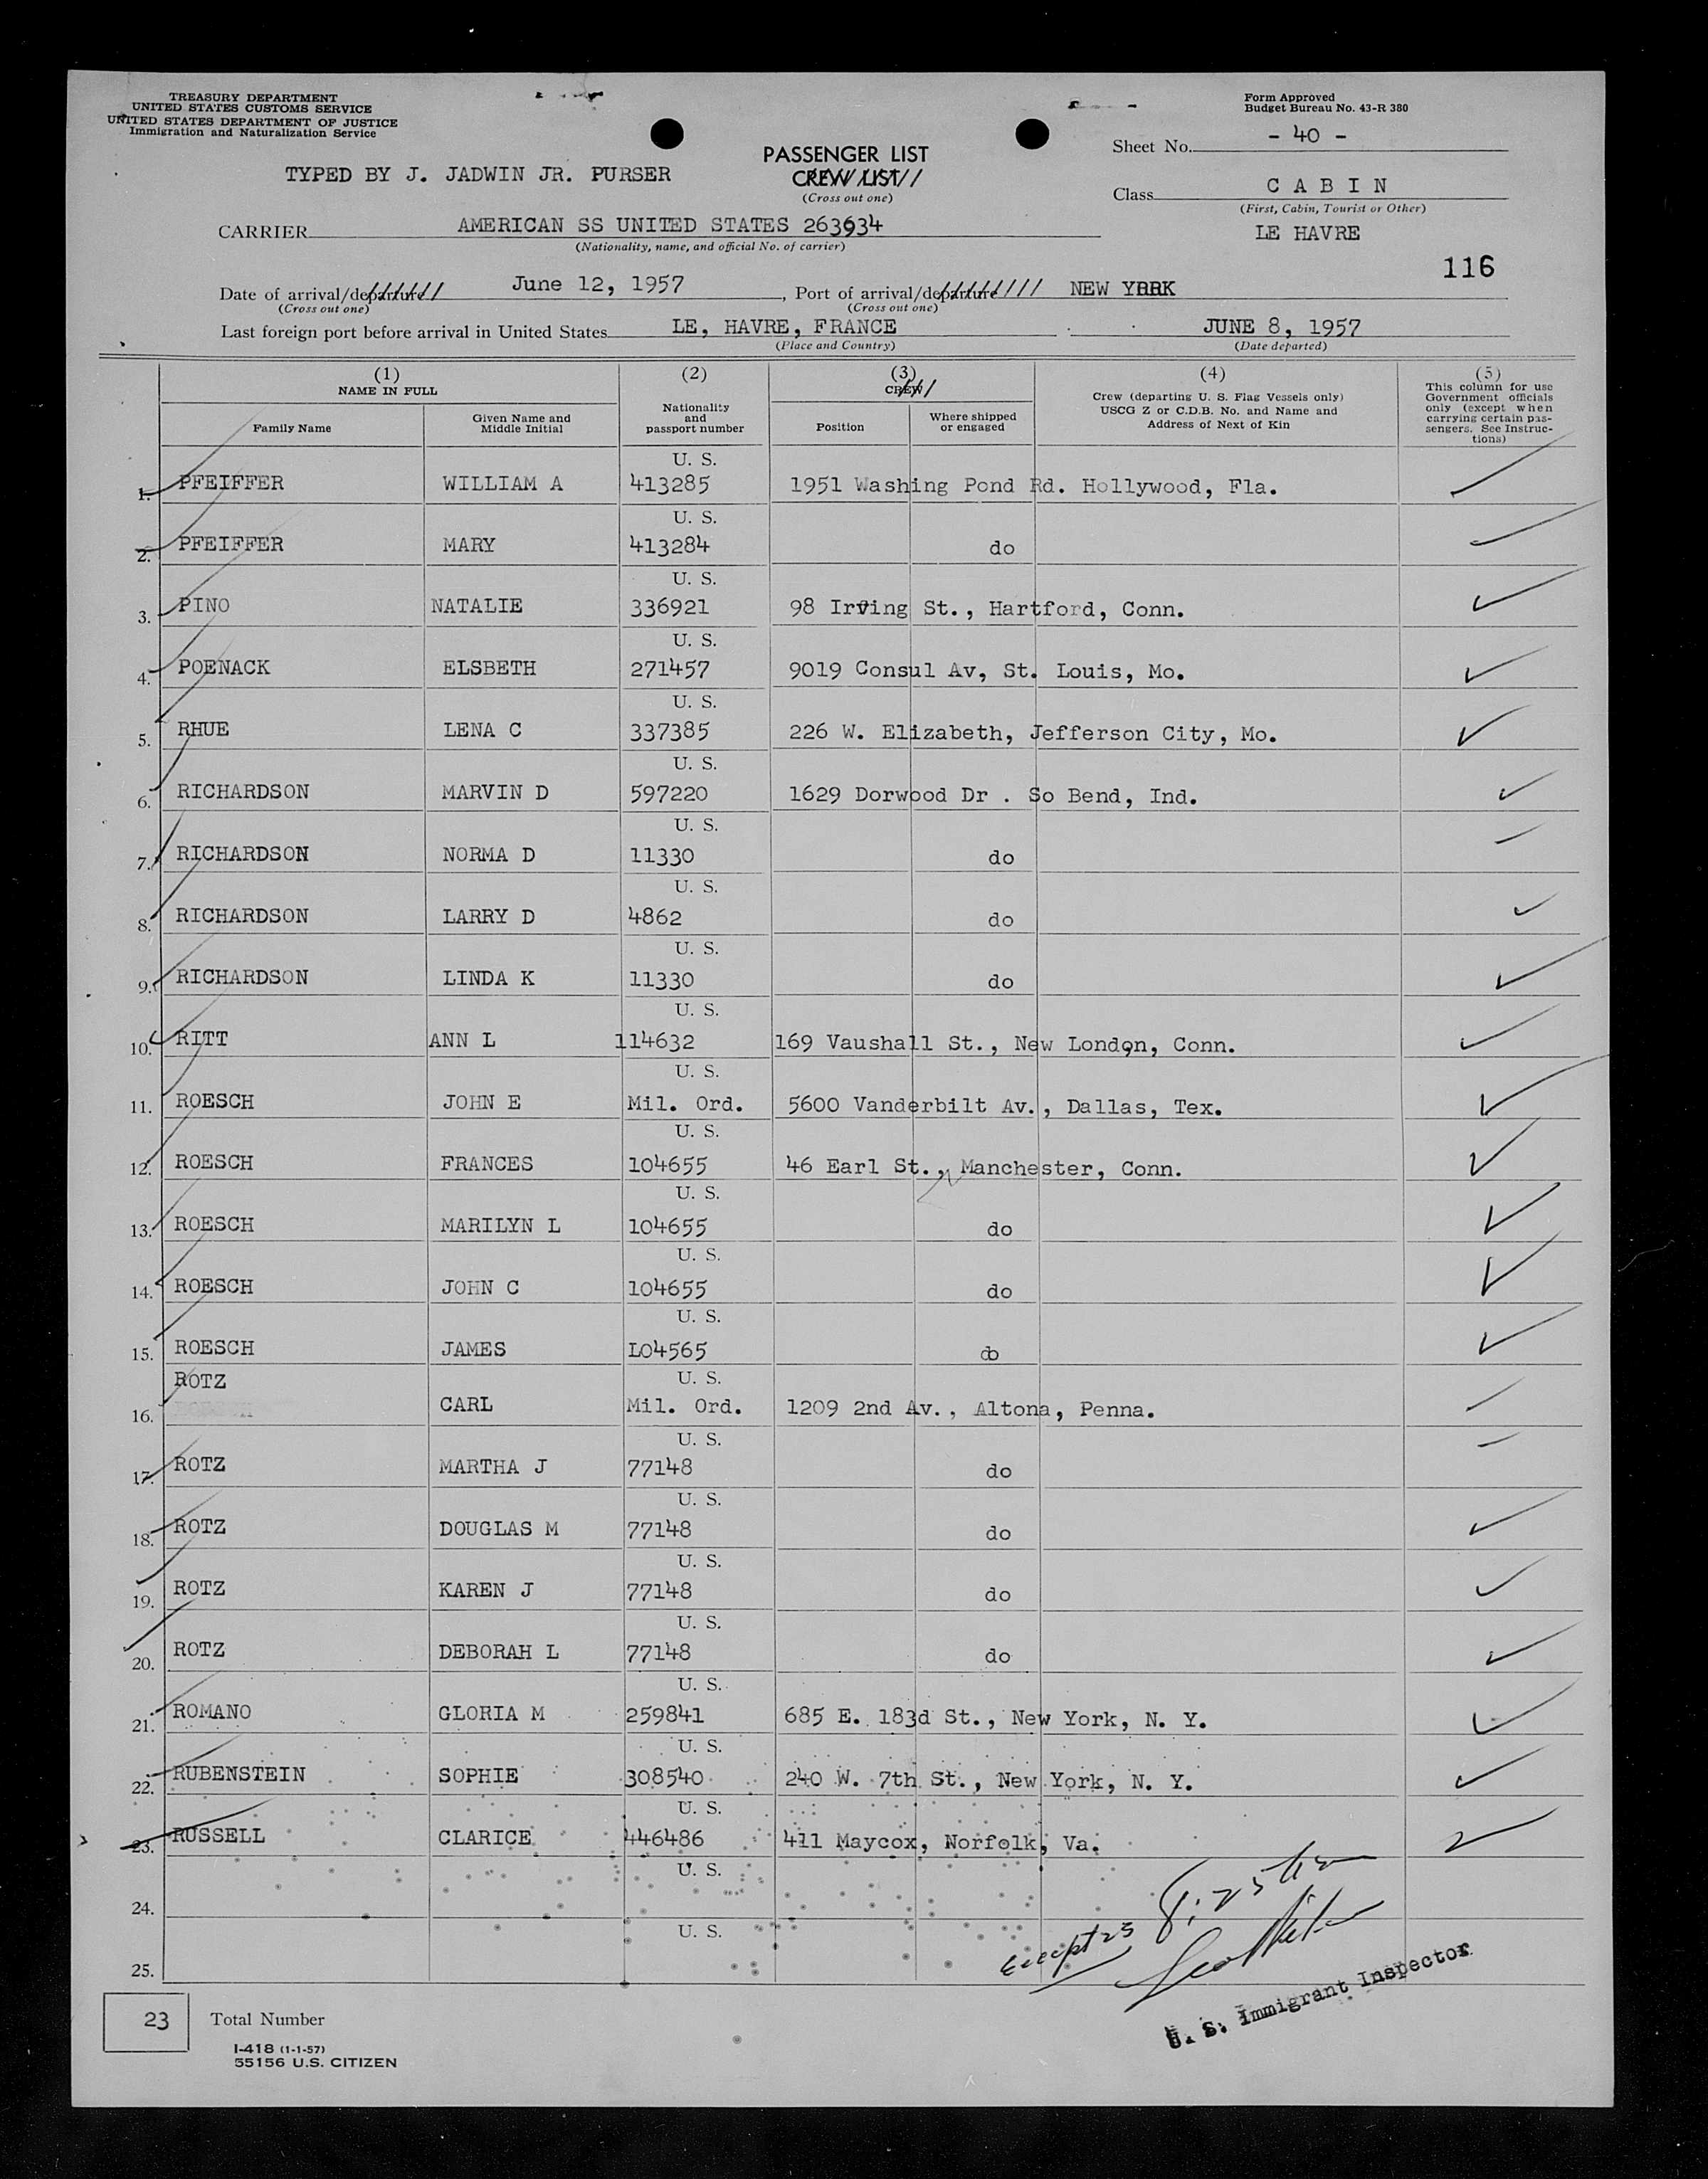 TREASURY DEPARTMENT
UNITED STATES CUSTOMS SERVICE
UNITED STATES DEPARTMENT OF JUSTICE
Immigration and Naturalization Service
Form Approved
Budget Bureau No. 43-R 380
TYPED BY J. JADWIN JR. PURSER
PASSENGER LIST
CREW LIST
(Cross out one)
Sheet No. - 40 -
Class CABIN
(First, Cabin, Tourist or Other)
CARRIER AMERICAN SS UNITED STATES 263934
(Nationality, name, and official No. of carrier)
LE HAVRE
116
Date of arrival/departure June 12, 1957, Port of arrival/departure NEW YORK
(Cross out one) (Cross out one)
Last foreign port before arrival in United States LE, HAVRE, FRANCE JUNE 8, 1957
(Place and Country) (Date departed)
(1) (2) (3) (4) (5)
NAME IN FULL
Family Name
Given Name and Middle Initial
Nationality and passport number
CREW
Position
Where shipped or engaged
Crew (departing U. S. Flag Vessels only)
USCG Z or C.D.B. No. and Name and
Address of Next of Kin
This column for use
Government officials
only (except when
carrying certain pas-
sengers. See Instruc-
tions)
U. S.
1. PFEIFFER WILLIAM A 413285 1951 Washing Pond Rd. Hollywood, Fla.
U. S.
2. PFEIFFER MARY 413284 do
U. S.
3. PINO NATALIE 336921 98 Irving St., Hartford, Conn.
U. S.
4. POENACK ELSBETH 271457 9019 Consul Av, St. Louis, Mo.
U. S.
5. RHUE LENA C 337385 226 W. Elizabeth, Jefferson City, Mo.
U. S.
6. RICHARDSON MARVIN D 597220 1629 Dorwood Dr . So Bend, Ind.
U. S.
7. RICHARDSON NORMA D 11330 do
U. S.
8. RICHARDSON LARRY D 4862 do
U. S.
9. RICHARDSON LINDA K 11330 do
U. S.
10. RITT ANN L 114632 169 Vaushall St., New London, Conn.
U. S.
11. ROESCH JOHN E Mil. Ord. 5600 Vanderbilt Av., Dallas, Tex.
U. S.
12. ROESCH FRANCES 104655 46 Earl St., Manchester, Conn.
U. S.
13. ROESCH MARILYN L 104655 do
U. S.
14. ROESCH JOHN C 104655 do
U. S.
15. ROESCH JAMES L04565 do
U. S.
16. ROTZ CARL Mil. Ord. 1209 2nd Av., Altona, Penna.
U. S.
17. ROTZ MARTHA J 77148 do
U. S.
18. ROTZ DOUGLAS M 77148 do
U. S.
19. ROTZ KAREN J 77148 do
U. S.
20. ROTZ DEBORAH L 77148 do
U. S.
21. ROMANO GLORIA M 259841 685 E. 183d St., New York, N. Y.
U. S.
22. RUBENSTEIN SOPHIE 308540 240 W. 7th St., New York, N. Y.
U. S.
23. RUSSELL CLARICE 446486 411 Maycox, Norfolk, Va.
U. S.
24.
U. S.
25.
except 23
U. S. Immigrant Inspector
23 Total Number
I-418 (1-1-57)
55156 U.S. CITIZEN